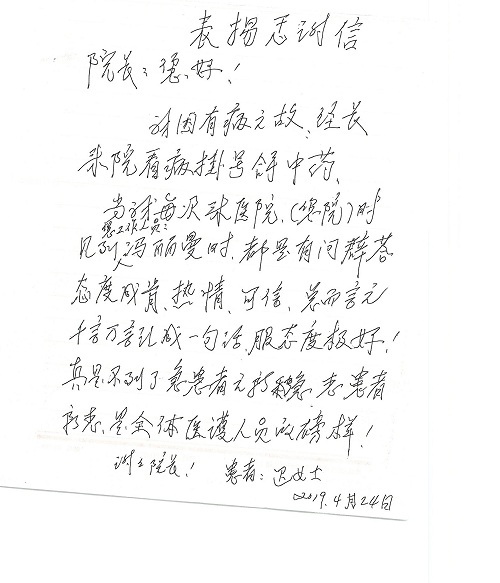 表扬感谢信
院长：您好！
我因有病之故、经长
来院看病掛号拿中药、
当我每次来医院、(您院)时
您工作人员：
见到冯丽曼时、都是有问群荅
态度成肯、热情、可信、总而言元
千言万言汇成一句话、服态度极好！
真是不到了急患者之所急 志患者
所志、是全体医護人员的磅样！
谢谢院长！ 患者：迟女士
2019.4月24日